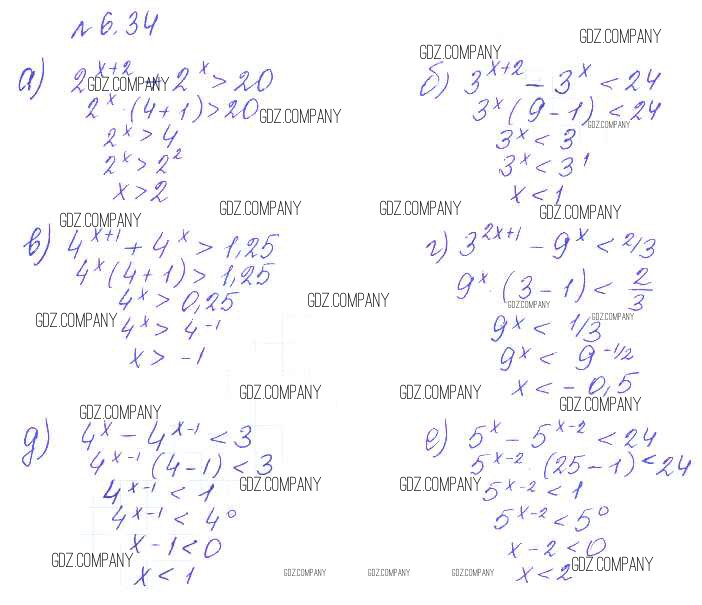 № 6.34
GDZ.COMPANY
GDZ.COMPANY
а) 2^{x+2} + 2^x > 20
GDZ.COMPANY
2^x · (4+1) > 20
GDZ.COMPANY
2^x > 4
2^x > 2^2
x > 2
б) 3^{x+2} - 3^x < 24
3^x (9-1) < 24
GDZ.COMPANY
3^x < 3
3^x < 3^1
x < 1
GDZ.COMPANY
GDZ.COMPANY
GDZ.COMPANY
GDZ.COMPANY
в) 4^{x+1} + 4^x > 1,25
4^x (4+1) > 1,25
4^x > 0,25
GDZ.COMPANY
GDZ.COMPANY
4^x > 4^{-1}
x > -1
г) 3^{2x+1} - 9^x < 2/3
9^x · (3-1) < 2/3
GDZ.COMPANY
GDZ.COMPANY
9^x < 1/3
9^x < 9^{-1/2}
x < -0,5
GDZ.COMPANY
GDZ.COMPANY
GDZ.COMPANY
GDZ.COMPANY
д) 4^x - 4^{x-1} < 3
4^{x-1} (4-1) < 3
4^{x-1} < 1
GDZ.COMPANY
4^{x-1} < 4^0
x-1 < 0
GDZ.COMPANY
x < 1
е) 5^x - 5^{x-2} < 24
5^{x-2} · (25-1) < 24
GDZ.COMPANY
5^{x-2} < 1
5^{x-2} < 5^0
x-2 < 0
x < 2
GDZ.COMPANY
GDZ.COMPANY
GDZ.COMPANY
GDZ.COMPANY